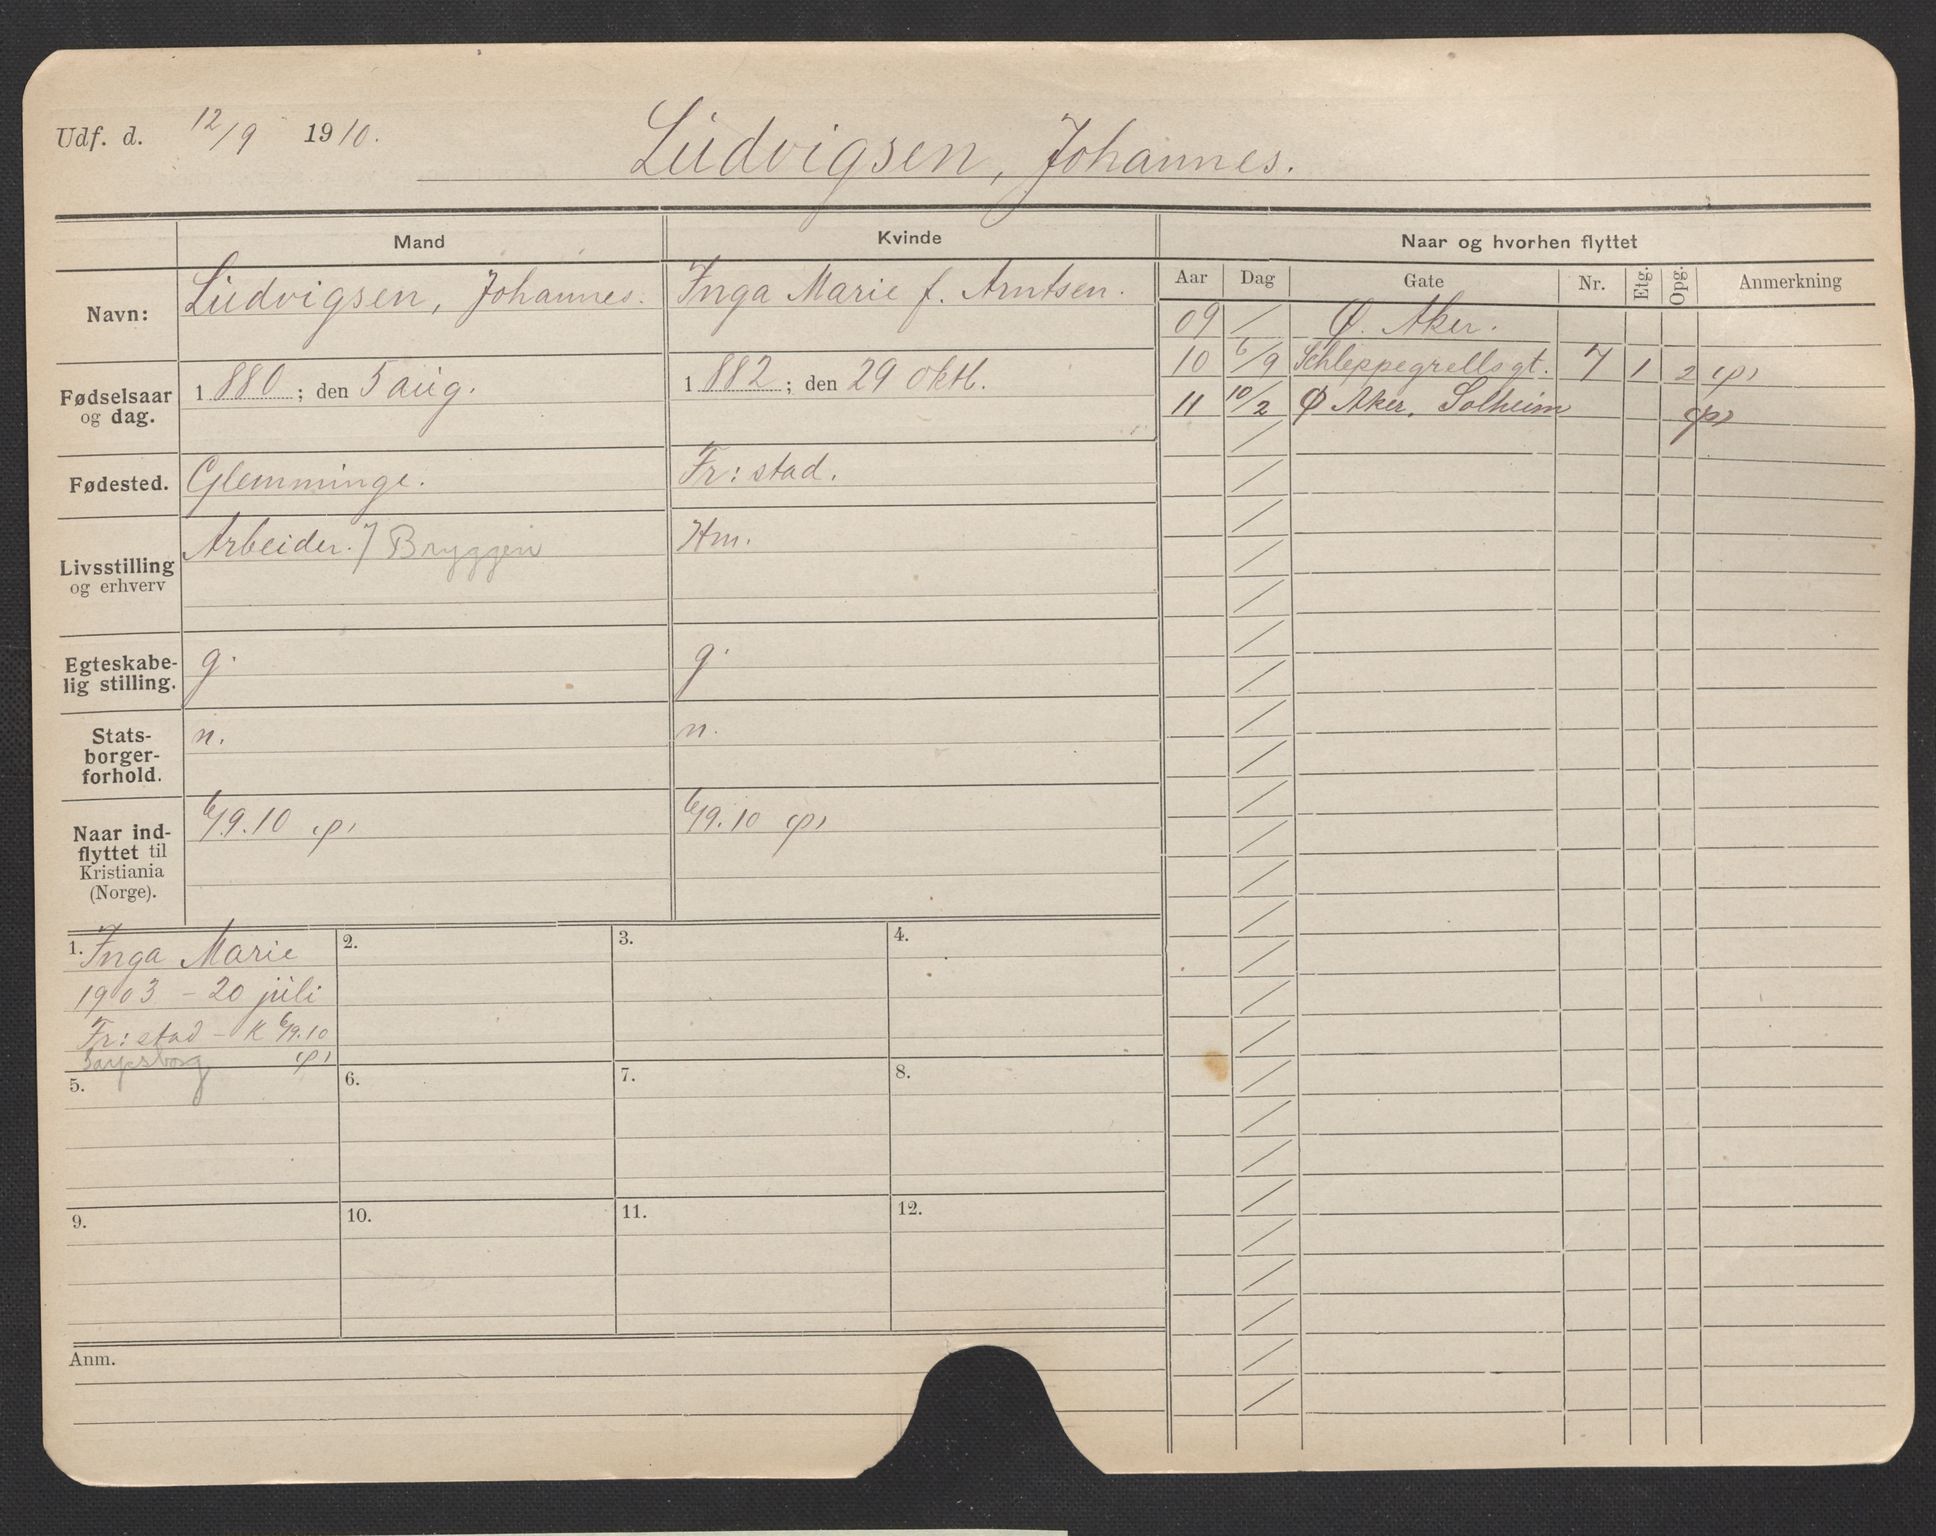 Udf. d. 12/9 1910. Ludvigsen, Johannes.
Mand Kvinde Naar og hvorhen flyttet
Navn: Ludvigsen, Johannes. Inga Marie f. Arntsen.
Aar Dag Gate Nr. Etg. Opg. Anmerkning
09 Ø. Aker.
10 6/9 Schleppegrellsgt. 7 1 2
11 10/2 Ø Aker. Solheim
Fødselsaar
og dag.
1880; den 5 aug. 1882; den 29 oktb.
Fødested. Glemminge. Fr:stad.
Livsstilling
og erhverv
Arbeider. / Bryggeri Hm.
Egteskabe-
lig stilling.
g. g.
Stats-
borger-
forhold.
n. n.
Naar ind-
flyttet til
Kristiania
(Norge).
6/9.10 6/9.10
1. Inga Marie
1903 - 20 juli
Fr:stad - K 6/9.10
2. 3. 4.
5. 6. 7. 8.
9. 10. 11. 12.
Anm.